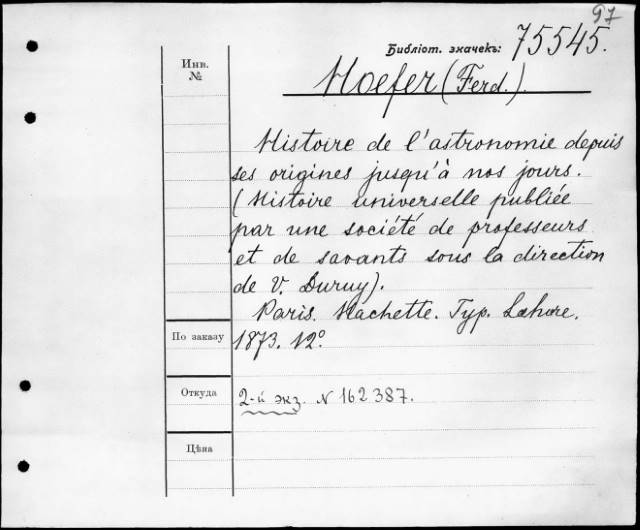 97
Библіот. значекъ: 75545.
Инв.
№
Hoefer (Ferd.).
Histoire de l'astronomie depuis
ses origines jusqu'à nos jours.
(Histoire universelle publiée
par une société de professeurs
et de savants sous la direction
de V. Duruy).
Paris. Hachette. Typ. Lahure.
По заказу
1873. 12°.
Откуда
2-й экз. N 162387.
Цѣна